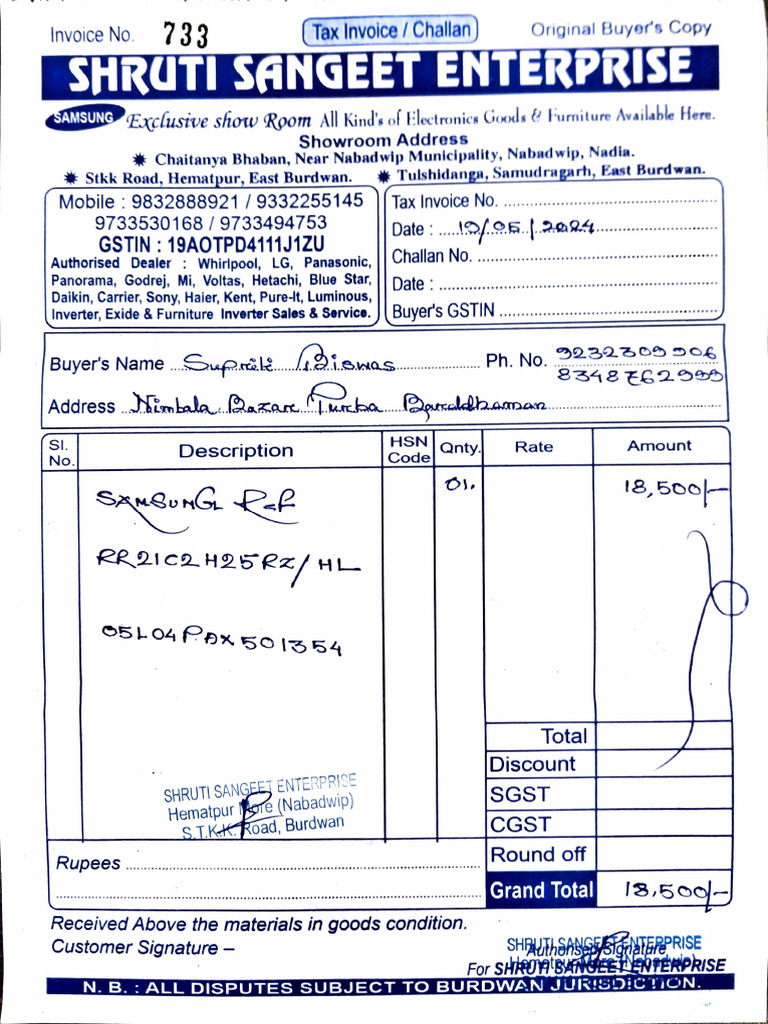 Invoice No. 733
Tax Invoice / Challan
Original Buyer's Copy
SHRUTI SANGEET ENTERPRISE
SAMSUNG Exclusive show Room All Kind's of Electronics Goods & Furniture Available Here.
Showroom Address
✷ Chaitanya Bhaban, Near Nabadwip Municipality, Nabadwip, Nadia.
✷ Stkk Road, Hematpur, East Burdwan. ✷ Tulshidanga, Samudragarh, East Burdwan.
Mobile : 9832888921 / 9332255145
9733530168 / 9733494753
GSTIN : 19AOTPD4111J1ZU
Authorised Dealer : Whirlpool, LG, Panasonic,
Panorama, Godrej, Mi, Voltas, Hetachi, Blue Star,
Daikin, Carrier, Sony, Haier, Kent, Pure-It, Luminous,
Inverter, Exide & Furniture Inverter Sales & Service.
Tax Invoice No.
Date : 19/05/2024
Challan No.
Date :
Buyer's GSTIN
Buyer's Name Supriti Biswas Ph. No. 9232309906
8348762999
Address Nimtala Bazar Purba Barddhaman
Sl. No. Description HSN Code Qnty. Rate Amount
SAMSUNG Ref 01. 18,500/-
RR21C2H25RZ/HL
05L04PAX501354
Total
Discount
SGST
CGST
Round off
Grand Total 18,500/-
SHRUTI SANGEET ENTERPRISE
Hematpur More (Nabadwip)
S.T.K.K. Road, Burdwan
Rupees
Received Above the materials in goods condition.
Customer Signature –
SHRUTI SANGEET ENTERPRISE
Authorised Signature
Hematpur More (Nabadwip)
For SHRUTI SANGEET ENTERPRISE
N. B. : ALL DISPUTES SUBJECT TO BURDWAN JURISDICTION.